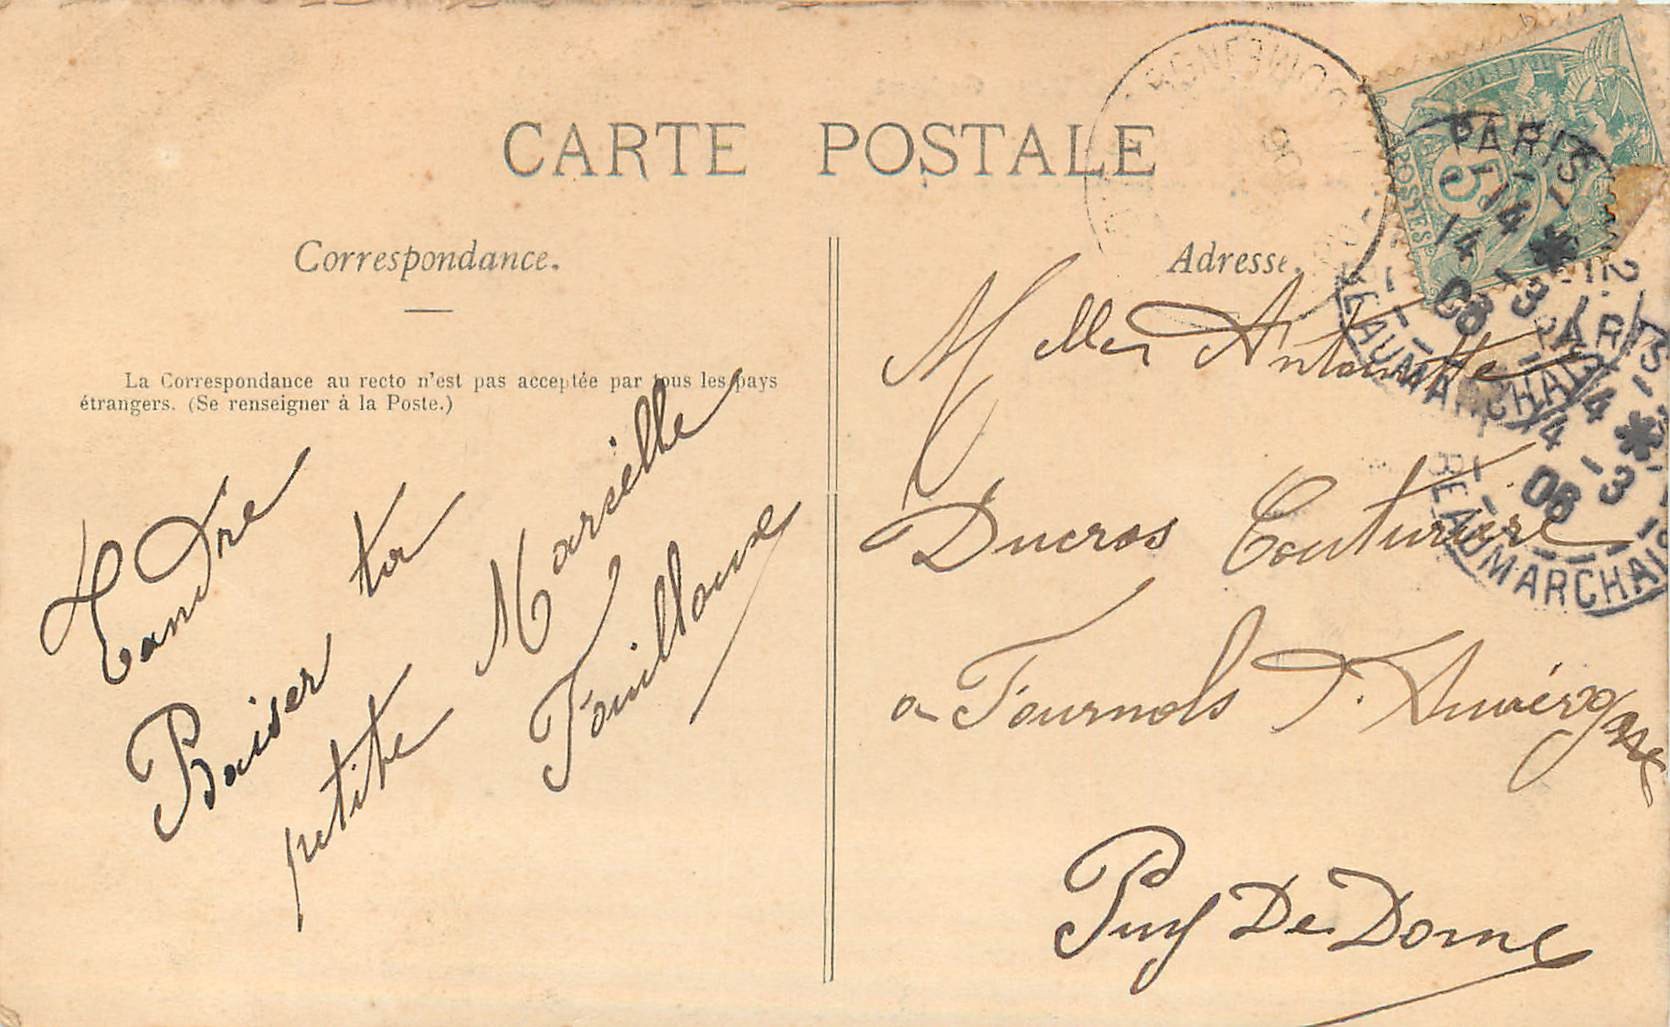 CARTE POSTALE
Correspondance.
La Correspondance au recto n'est pas acceptée par tous les pays
étrangers. (Se renseigner à la Poste.)
Tandre
Baiser ta
petite Marcelle
Fouilloux
Adresse.
Melles Antoinette
Ducros Couturière
a Fournols D'Auvérgne
Puy De Dome
POSTES
5
PARIS
14 -3 06
BEAUMARCHAIS
PARIS
14 -3 06
BEAUMARCHAIS